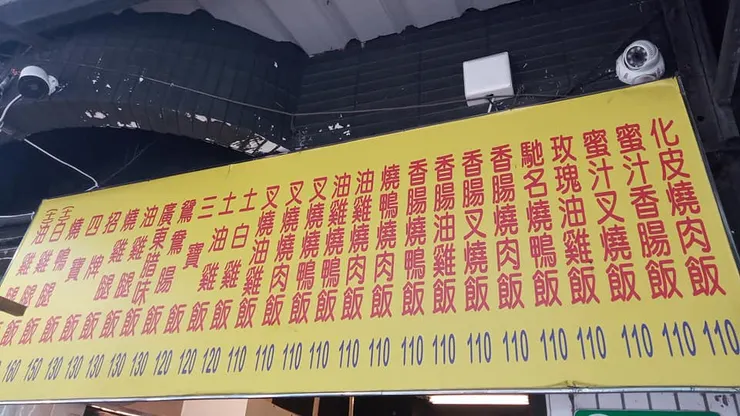 化皮燒肉飯 110
蜜汁香腸飯 110
蜜汁叉燒飯 110
玫瑰油雞飯 110
馳名燒鴨飯 110
香腸燒肉飯 110
香腸叉燒飯 110
香腸油雞飯 110
香腸燒鴨飯 110
燒鴨燒肉飯 110
油雞燒肉飯 110
油雞燒鴨飯 110
叉燒燒鴨飯 110
叉燒燒肉飯 110
叉燒油雞飯 110
土白雞飯 110
土油雞飯
三寶飯 120
鴛鴦飯 120
廣東腊味飯
油雞腿飯 130
招牌飯 130
四寶飯 130
燒鴨腿飯 130
白雞腿飯 150
油雞腿飯 160